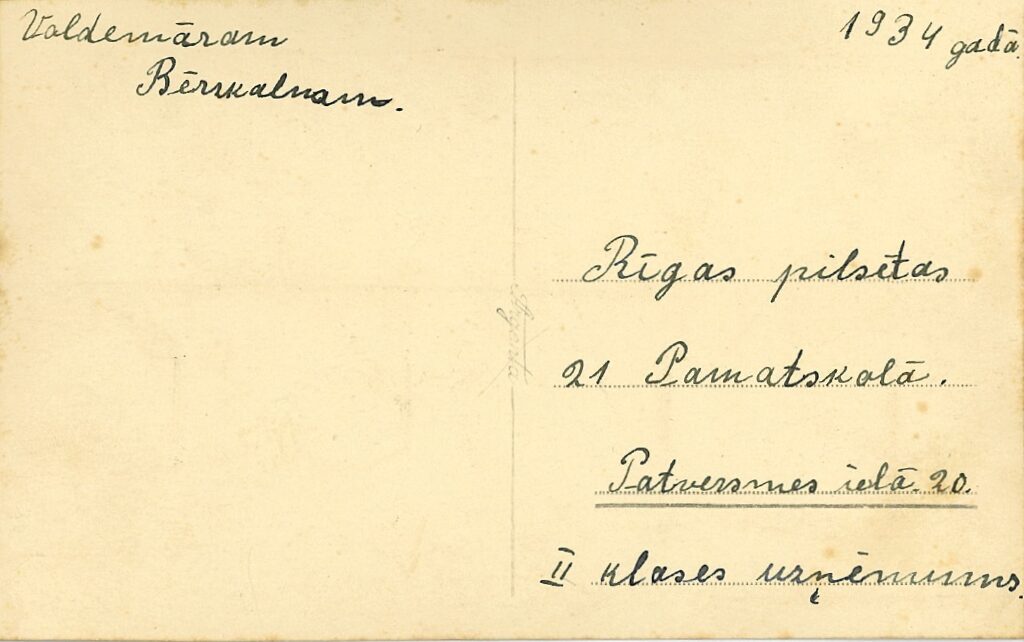 Voldemāram
Bērzkalnam.
1934 gadā.
Rīgas pilsētas
21 Pamatskolā.
Patversmes ielā. 20.
II klases uzņēmums.